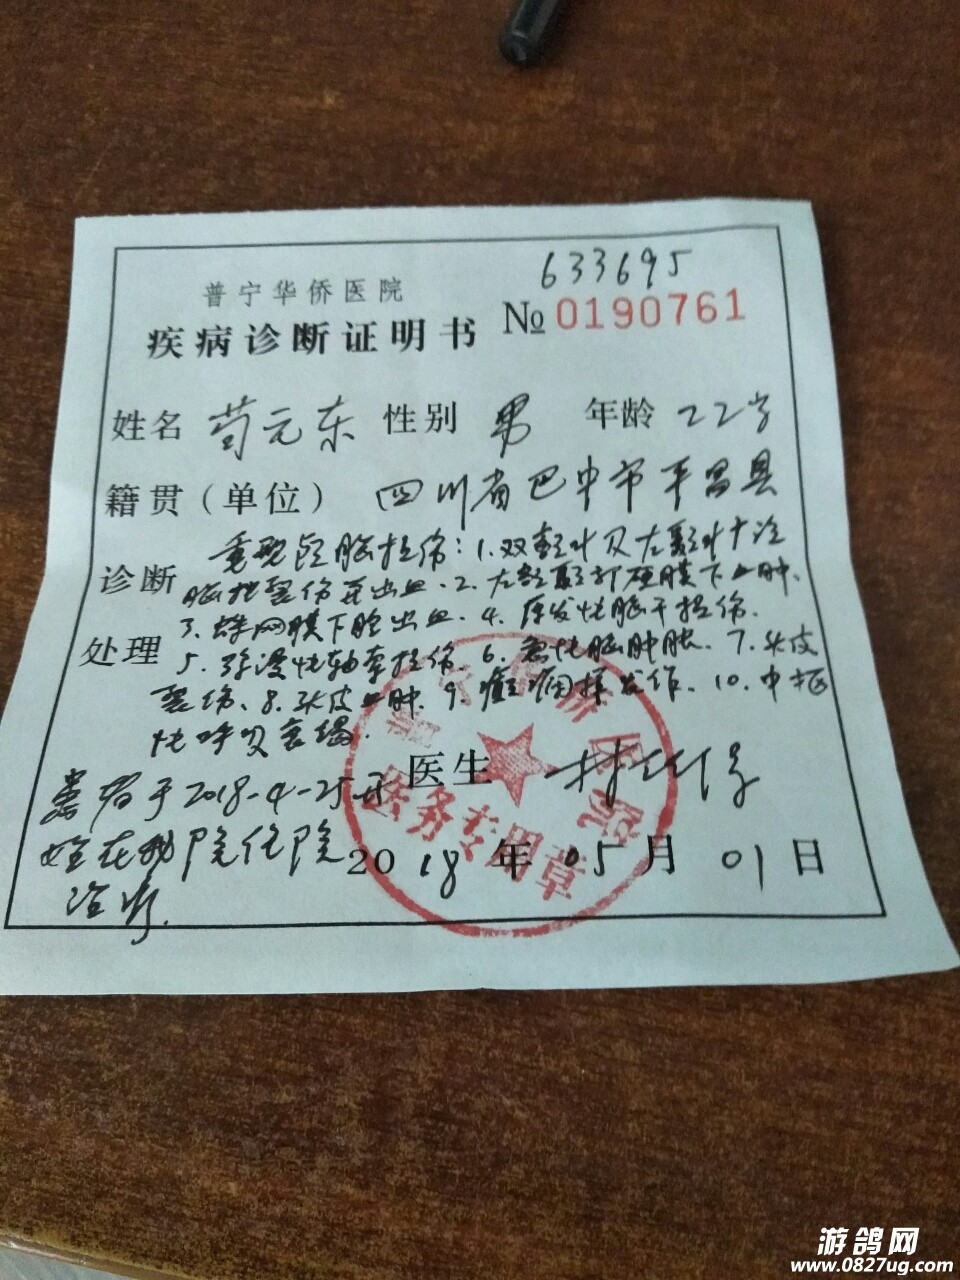 633695
普宁华侨医院
疾病诊断证明书 № 0190761
姓名 苟元东 性别 男 年龄 22岁
籍贯（单位） 四川省巴中市平昌县
诊断
处理
重型颅脑损伤：1.双额叶及左颞叶
脑挫裂伤并出血.2.左额颞部硬膜下血肿.
3.蛛网膜下腔出血.4.原发性脑干损伤.
5.弥漫性轴索损伤.6.急性脑肿胀.7.头皮
裂伤.8.头皮血肿.9.癫痫样发作.10.中枢
性呼吸衰竭.
医生
患者于2018-4-25开
始在我院住院
治疗.
2018年05月01日
普宁华侨医院
医务专用章
游鸽网
www.0827ug.com